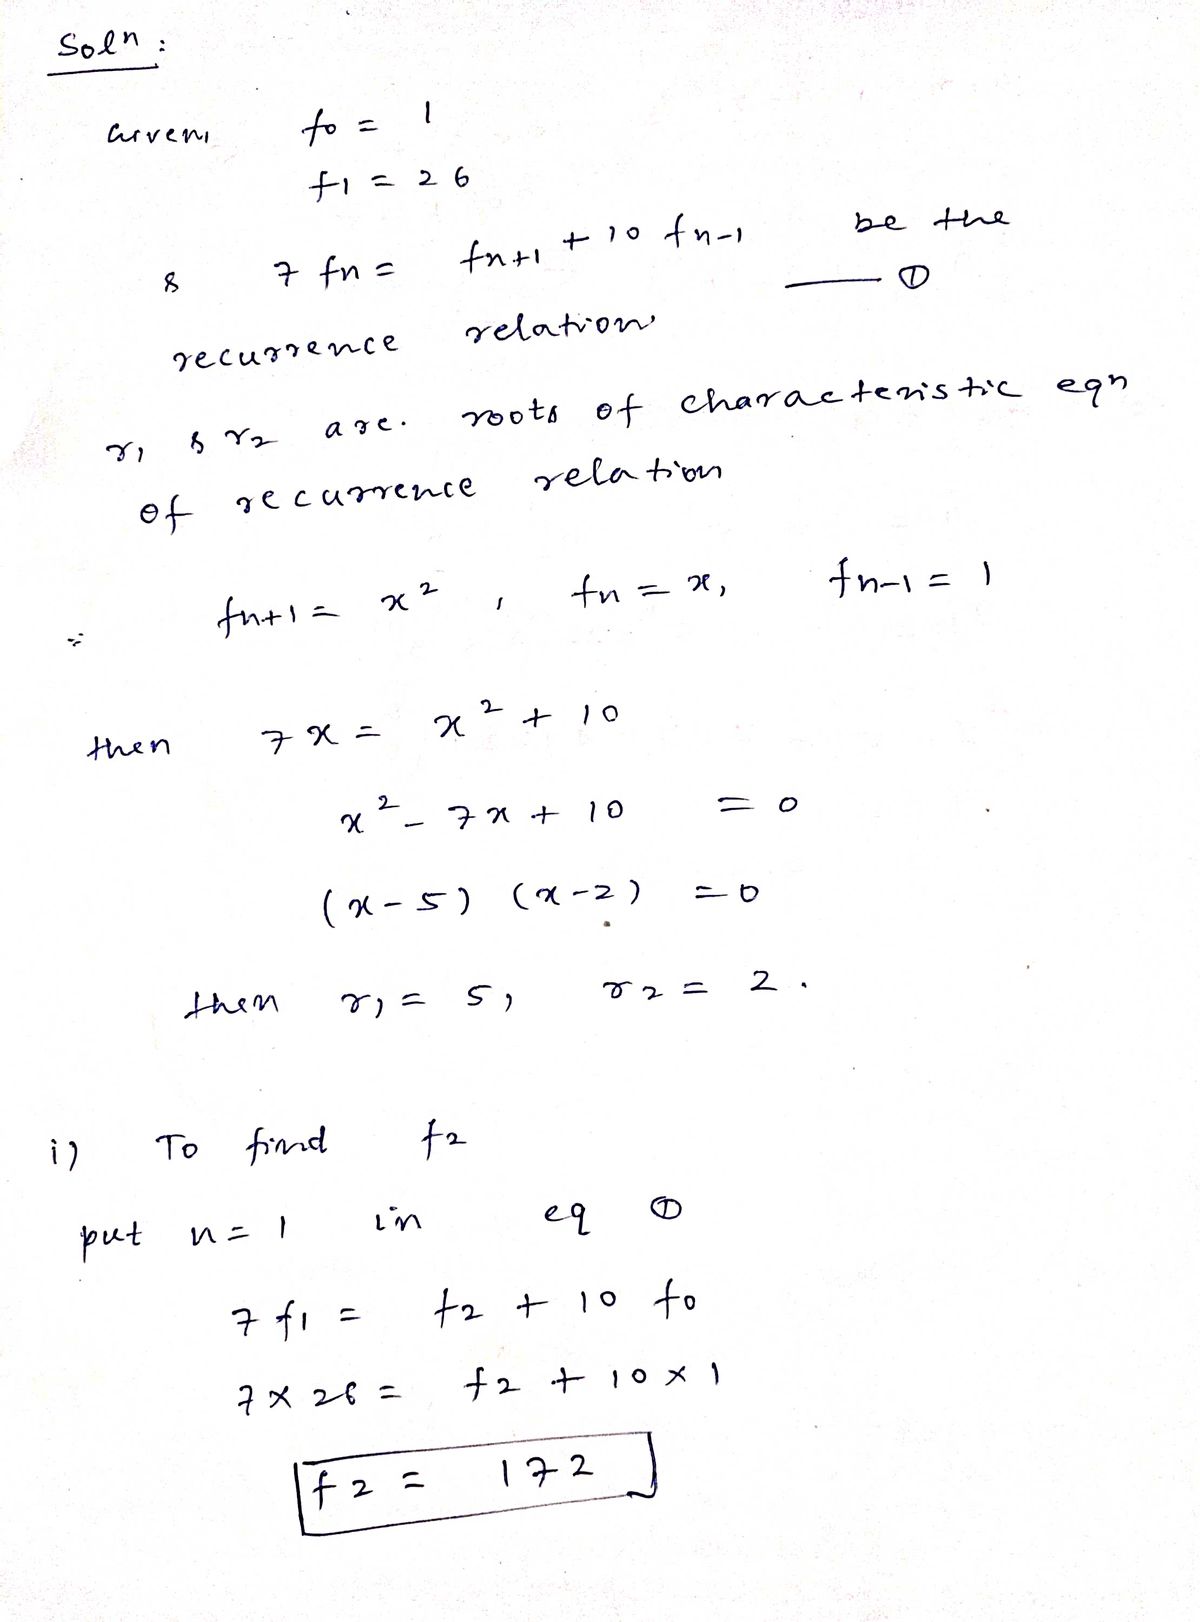 Soln :
Given, f0 = 1
f1 = 26
& 7 fn = fn+1 + 10 fn-1 be the
—— ①
recurrence relation.
r1 & r2 are. roots of characteristic eqn
of recurrence relation
∵ fn+1 = x² , fn = x, fn-1 = 1
then 7x = x² + 10
x² - 7x + 10 = 0
(x-5) (x-2) = 0
then r1 = 5, r2 = 2.
i) To find f2
put n = 1 in eq ①
7 f1 = f2 + 10 f0
7 × 26 = f2 + 10 × 1
f2 = 172